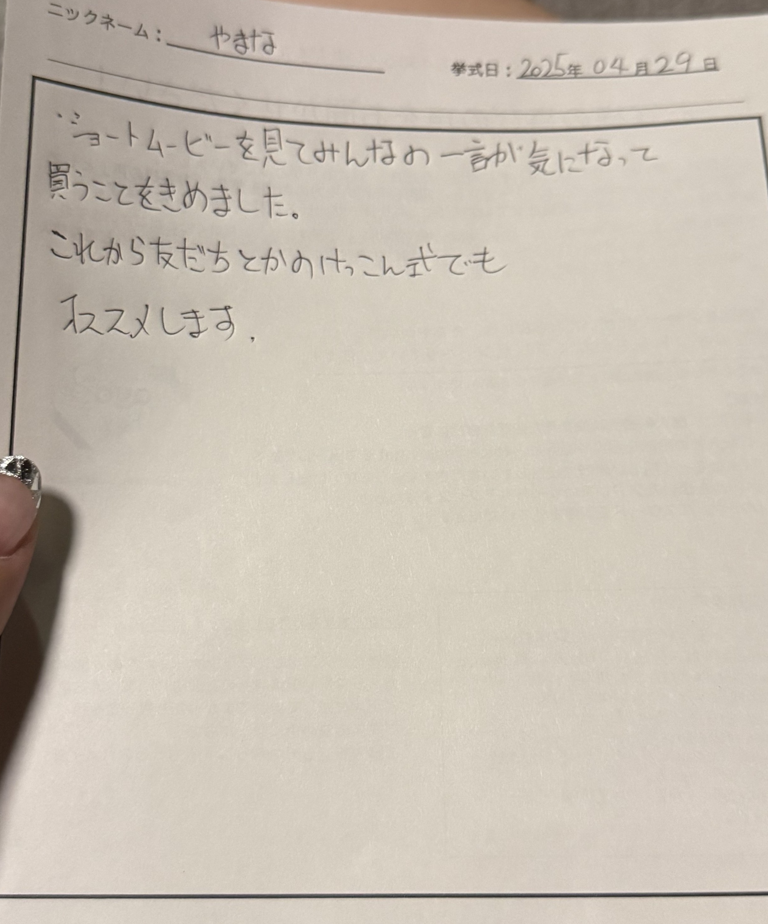 ニックネーム: やまな
挙式日: 2025年 04月29日
ショートムービーを見てみんなの一言が気になって
買うことをきめました。
これから友だちとかのけっこん式でも
オススメします.